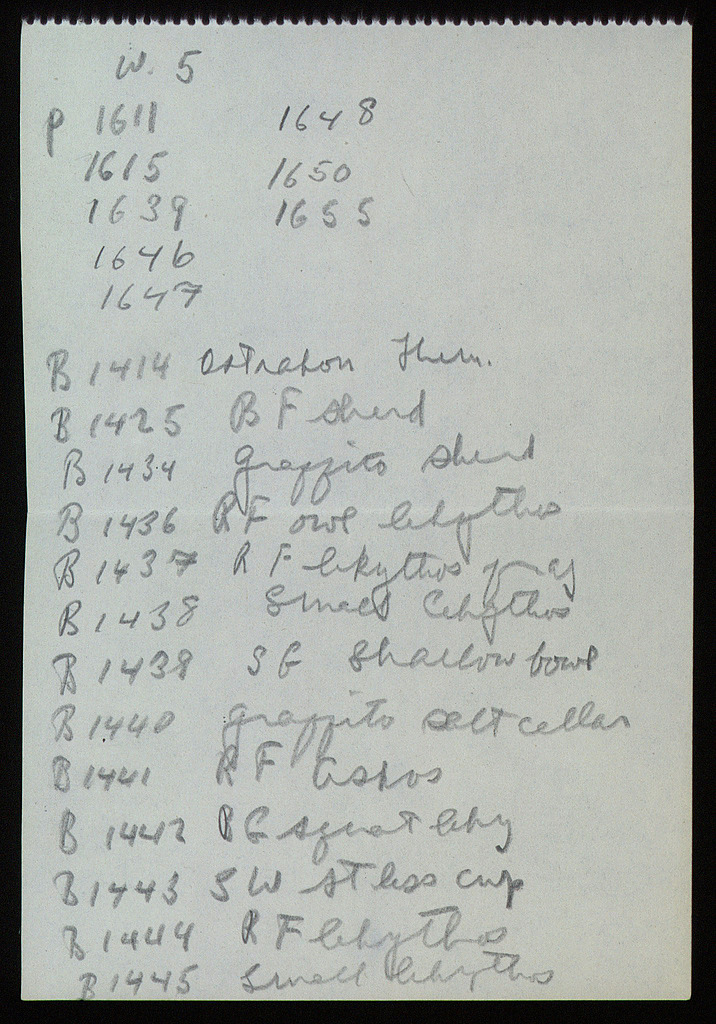 W. 5
P 1611 1648
1615 1650
1639 1655
1646
1647
B 1414 Ostrakon Them.
B 1425 BF sherd
B 1434 graffito sherd
B 1436 RF owl lekythos
B 1437 RF lekythos
B 1438 Small lekythos
B 1439 SG Shallow bowl
B 1440 graffito salt cellar
B 1441 RF
B 1442 BG squat leky
B 1443 SW st less cup
B 1444 RF lekythos
B 1445 Small lekythos